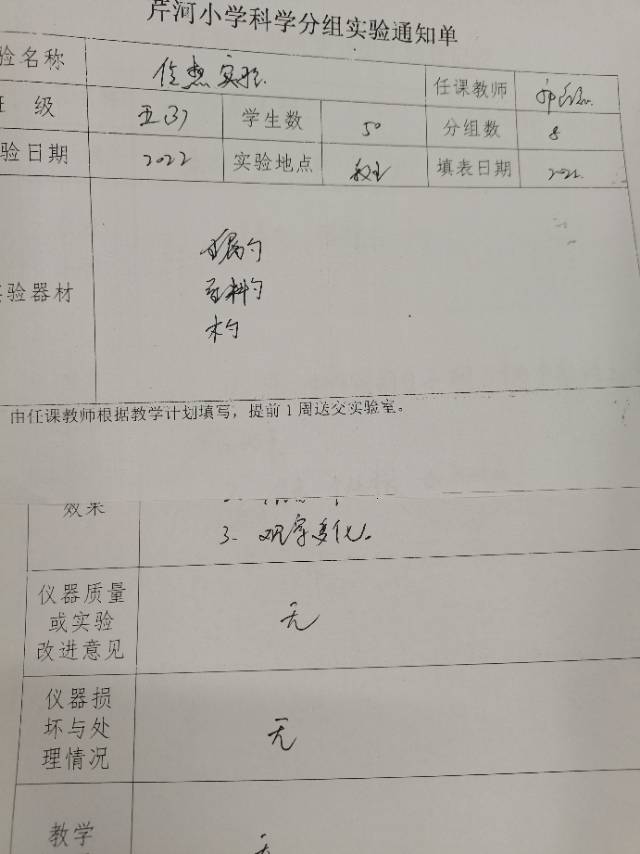 芹河小学科学分组实验通知单
验名称 传热实验 任课教师
级 五(3) 学生数 50 分组数 8
验日期 2022 实验地点 教室 填表日期 2022.
验器材
金属勺
塑料勺
木勺
由任课教师根据教学计划填写，提前1周送交实验室。
效果
3、观察变化。
仪器质量
或实验
改进意见
无
仪器损
坏与处
理情况
无
教学